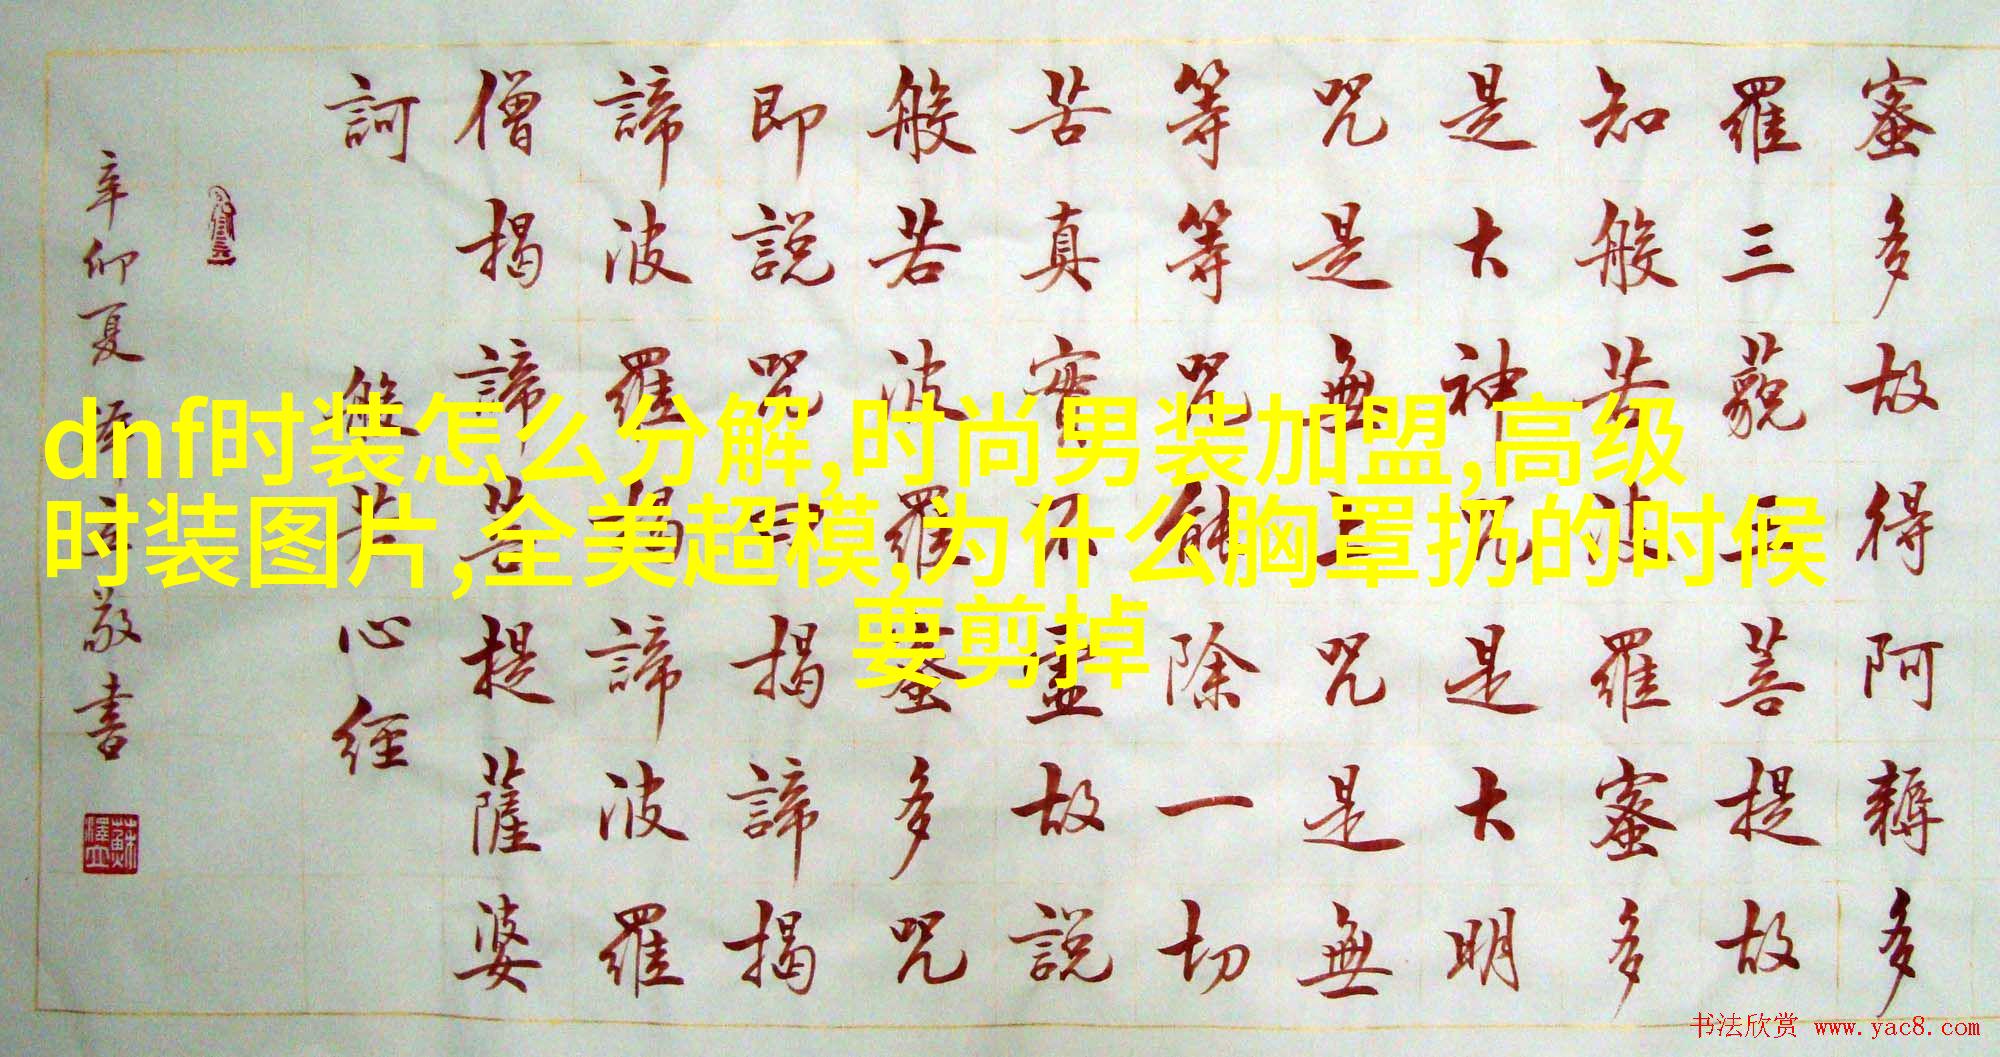 dnf时装怎么分解,时尚男装加盟,高级
时装图片,全美超模,为什么胸罩扔的时候
要剪掉
蜜多故得阿耨多
羅三藐三菩提故
知般若波羅蜜多
是大神咒是大明
咒是無上咒是無
等等咒能除一切
苦真實不虛故說
般若波羅蜜多咒
即說咒曰揭諦揭
諦波羅揭諦波羅
僧揭諦菩提薩婆
訶 般若心經
辛卯夏澤立敬書
蘇澤立
书法欣赏 www.yac8.com